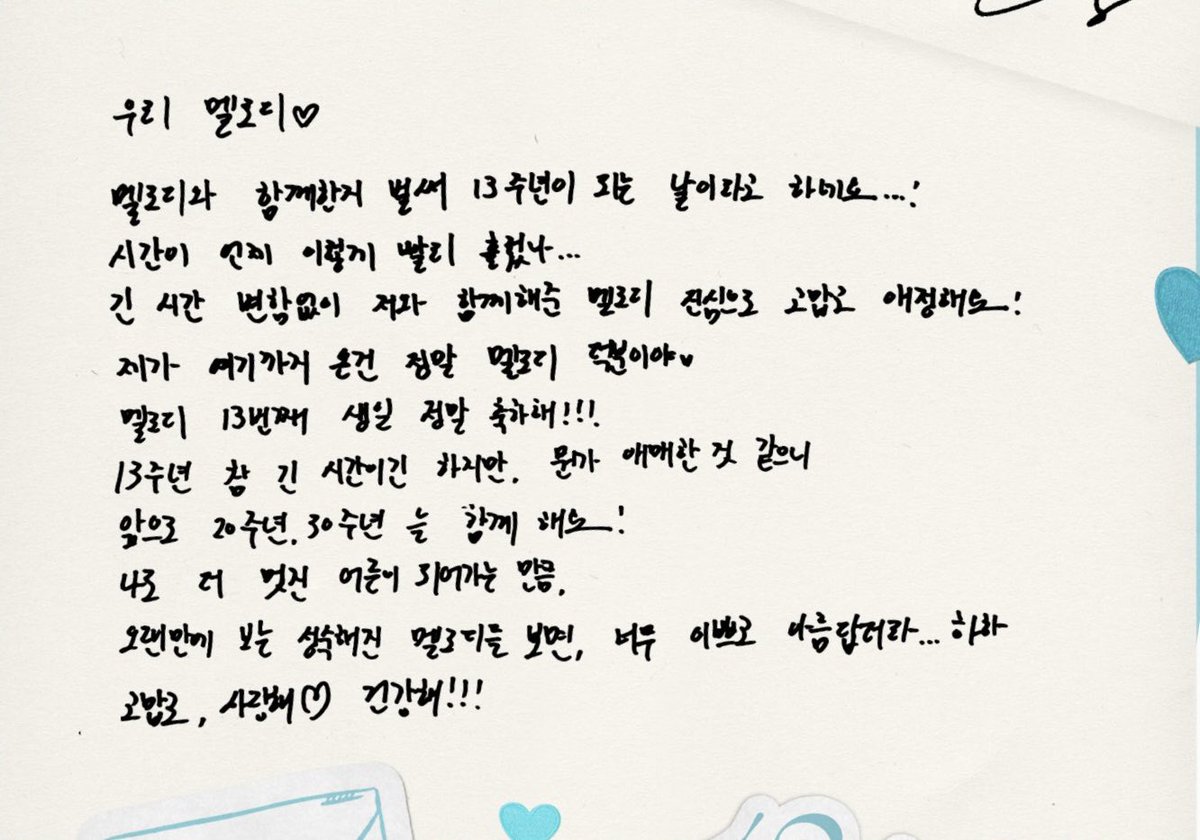 우리 멜로디♡
멜로디와 함께한지 벌써 13주년이 되는 날이라고 하네요...!
시간이 언제 이렇게 빨리 흘렀나...
긴 시간 변함없이 저와 함께해준 멜로디 진심으로 고맙고 애정해요!
제가 여기까지 온건 정말 멜로디 덕분이야♥
멜로디 13번째 생일 정말 축하해!!!
13주년 참 긴 시간이긴 하지만, 뭔가 애매한 것 같으니
앞으로 20주년, 30주년 늘 함께 해요!
나도 더 멋진 어른이 되어가는 만큼,
오랜만에 보는 성숙해진 멜로디들 보면, 너무 이쁘고 아름답더라... 하하
고맙고, 사랑해♡ 건강해!!!